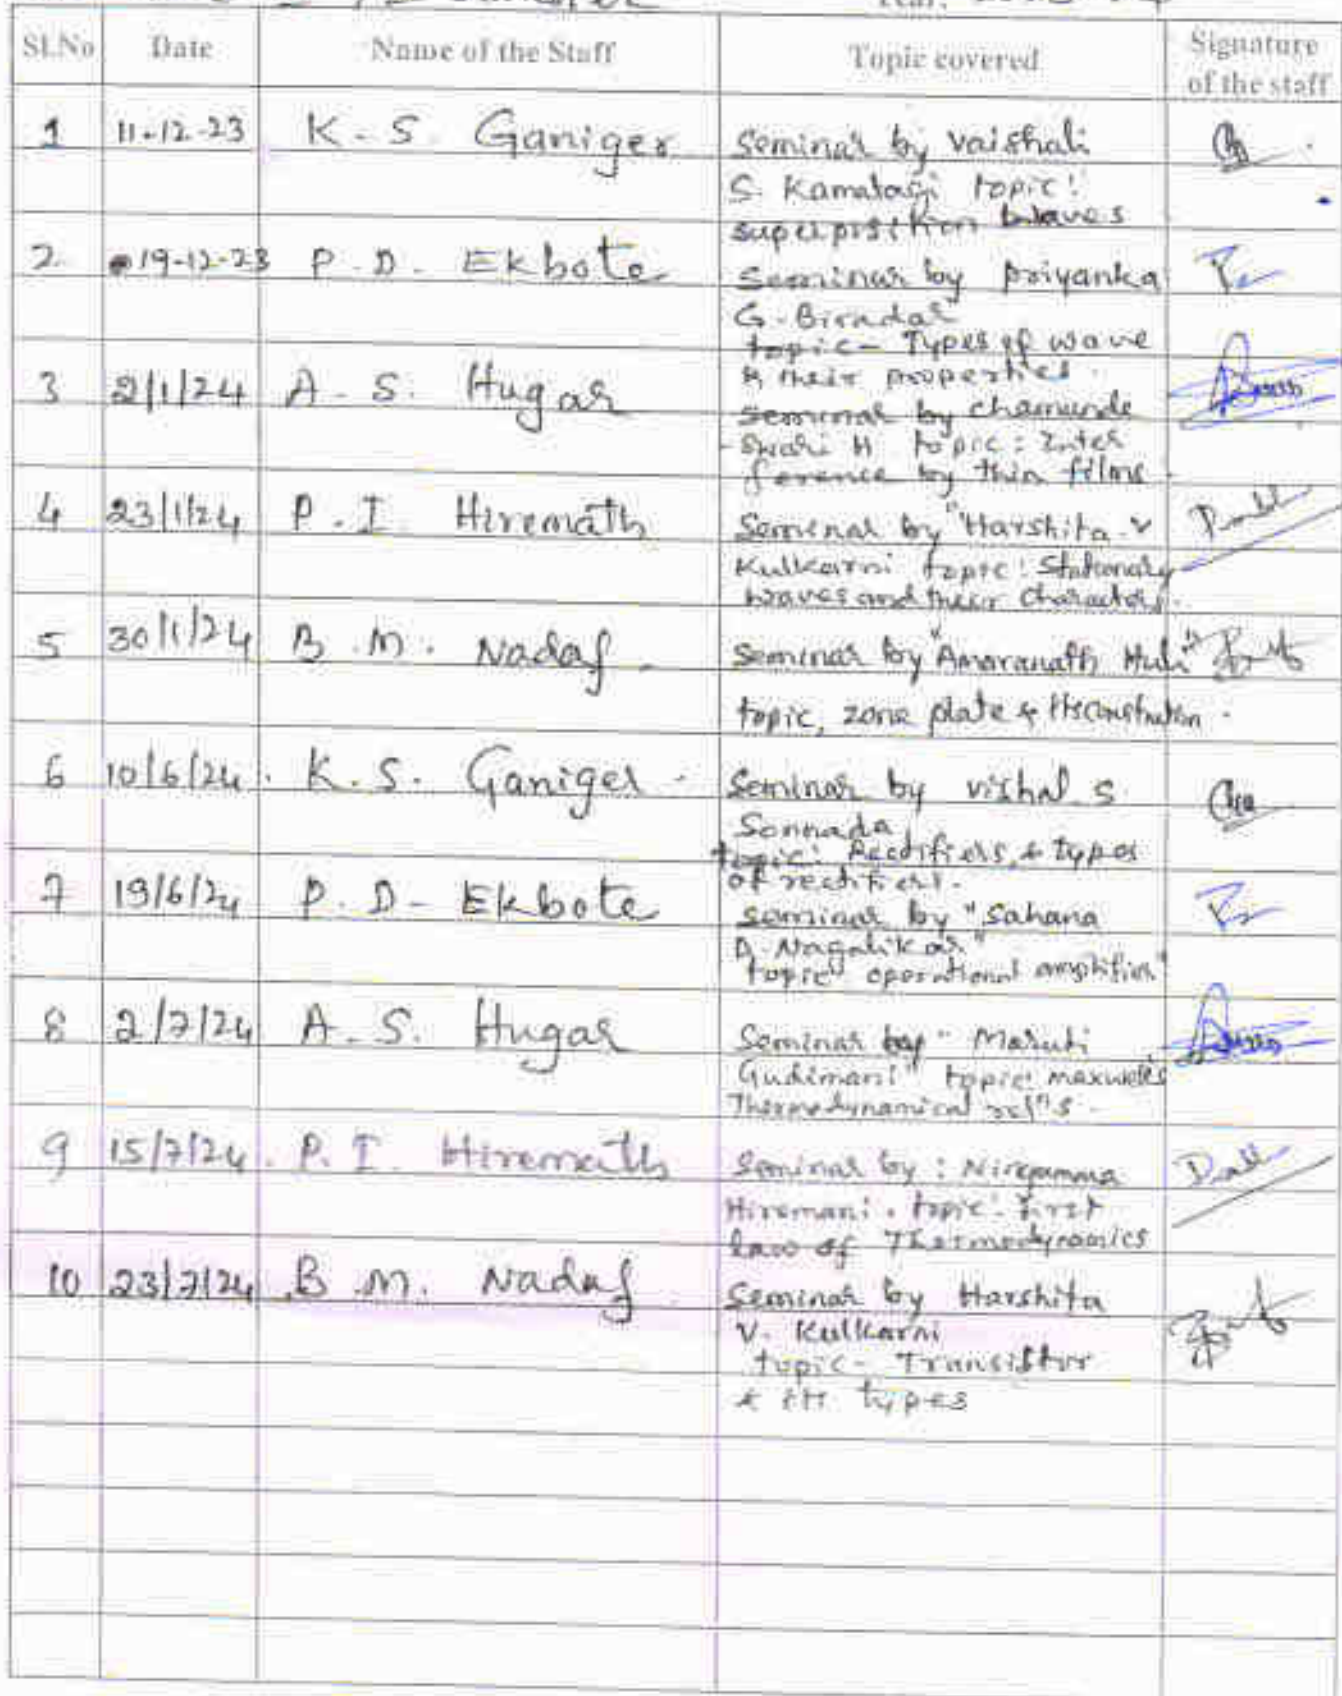 Sl.No Date Name of the Staff Topic covered Signature of the staff
1 11-12-23 K. S. Ganiger Seminar by Vaishali
S. Kamatagi topic:
superposition waves
2 19-12-23 P. D. Ekbote Seminar by priyanka
G. Biradar
topic - Types of wave
& their properties.
3 2/1/24 A. S. Hugar Seminar by chamunde
- Swari H topic: Inter
ference by thin films.
4 23/1/24 P. I. Hiremath Seminar by "Harshita. V
Kulkarni topic: Stationary
waves and their Characters.
5 30/1/24 B. M. Nadaf Seminar by "Amaranath Huli"
topic, zone plate & Its construction.
6 10/6/24 K. S. Ganiger Seminar by vishal S
Sonnada
topic: Rectifiers & types
of rectifiers.
7 19/6/24 P. D. Ekbote Seminar by "Sahana
D. Nagalikar"
topic operational amplifier"
8 2/7/24 A. S. Hugar Seminar by "Maruti
Gudimani" topic: maxwell's
Thermodynamical relns.
9 15/7/24 P. I. Hiremath Seminar by:
Hiremani. topic: first
law of Thermodynamics
10 23/7/24 B. M. Nadaf Seminar by Harshita
V. Kulkarni
topic - Transistor
& its types